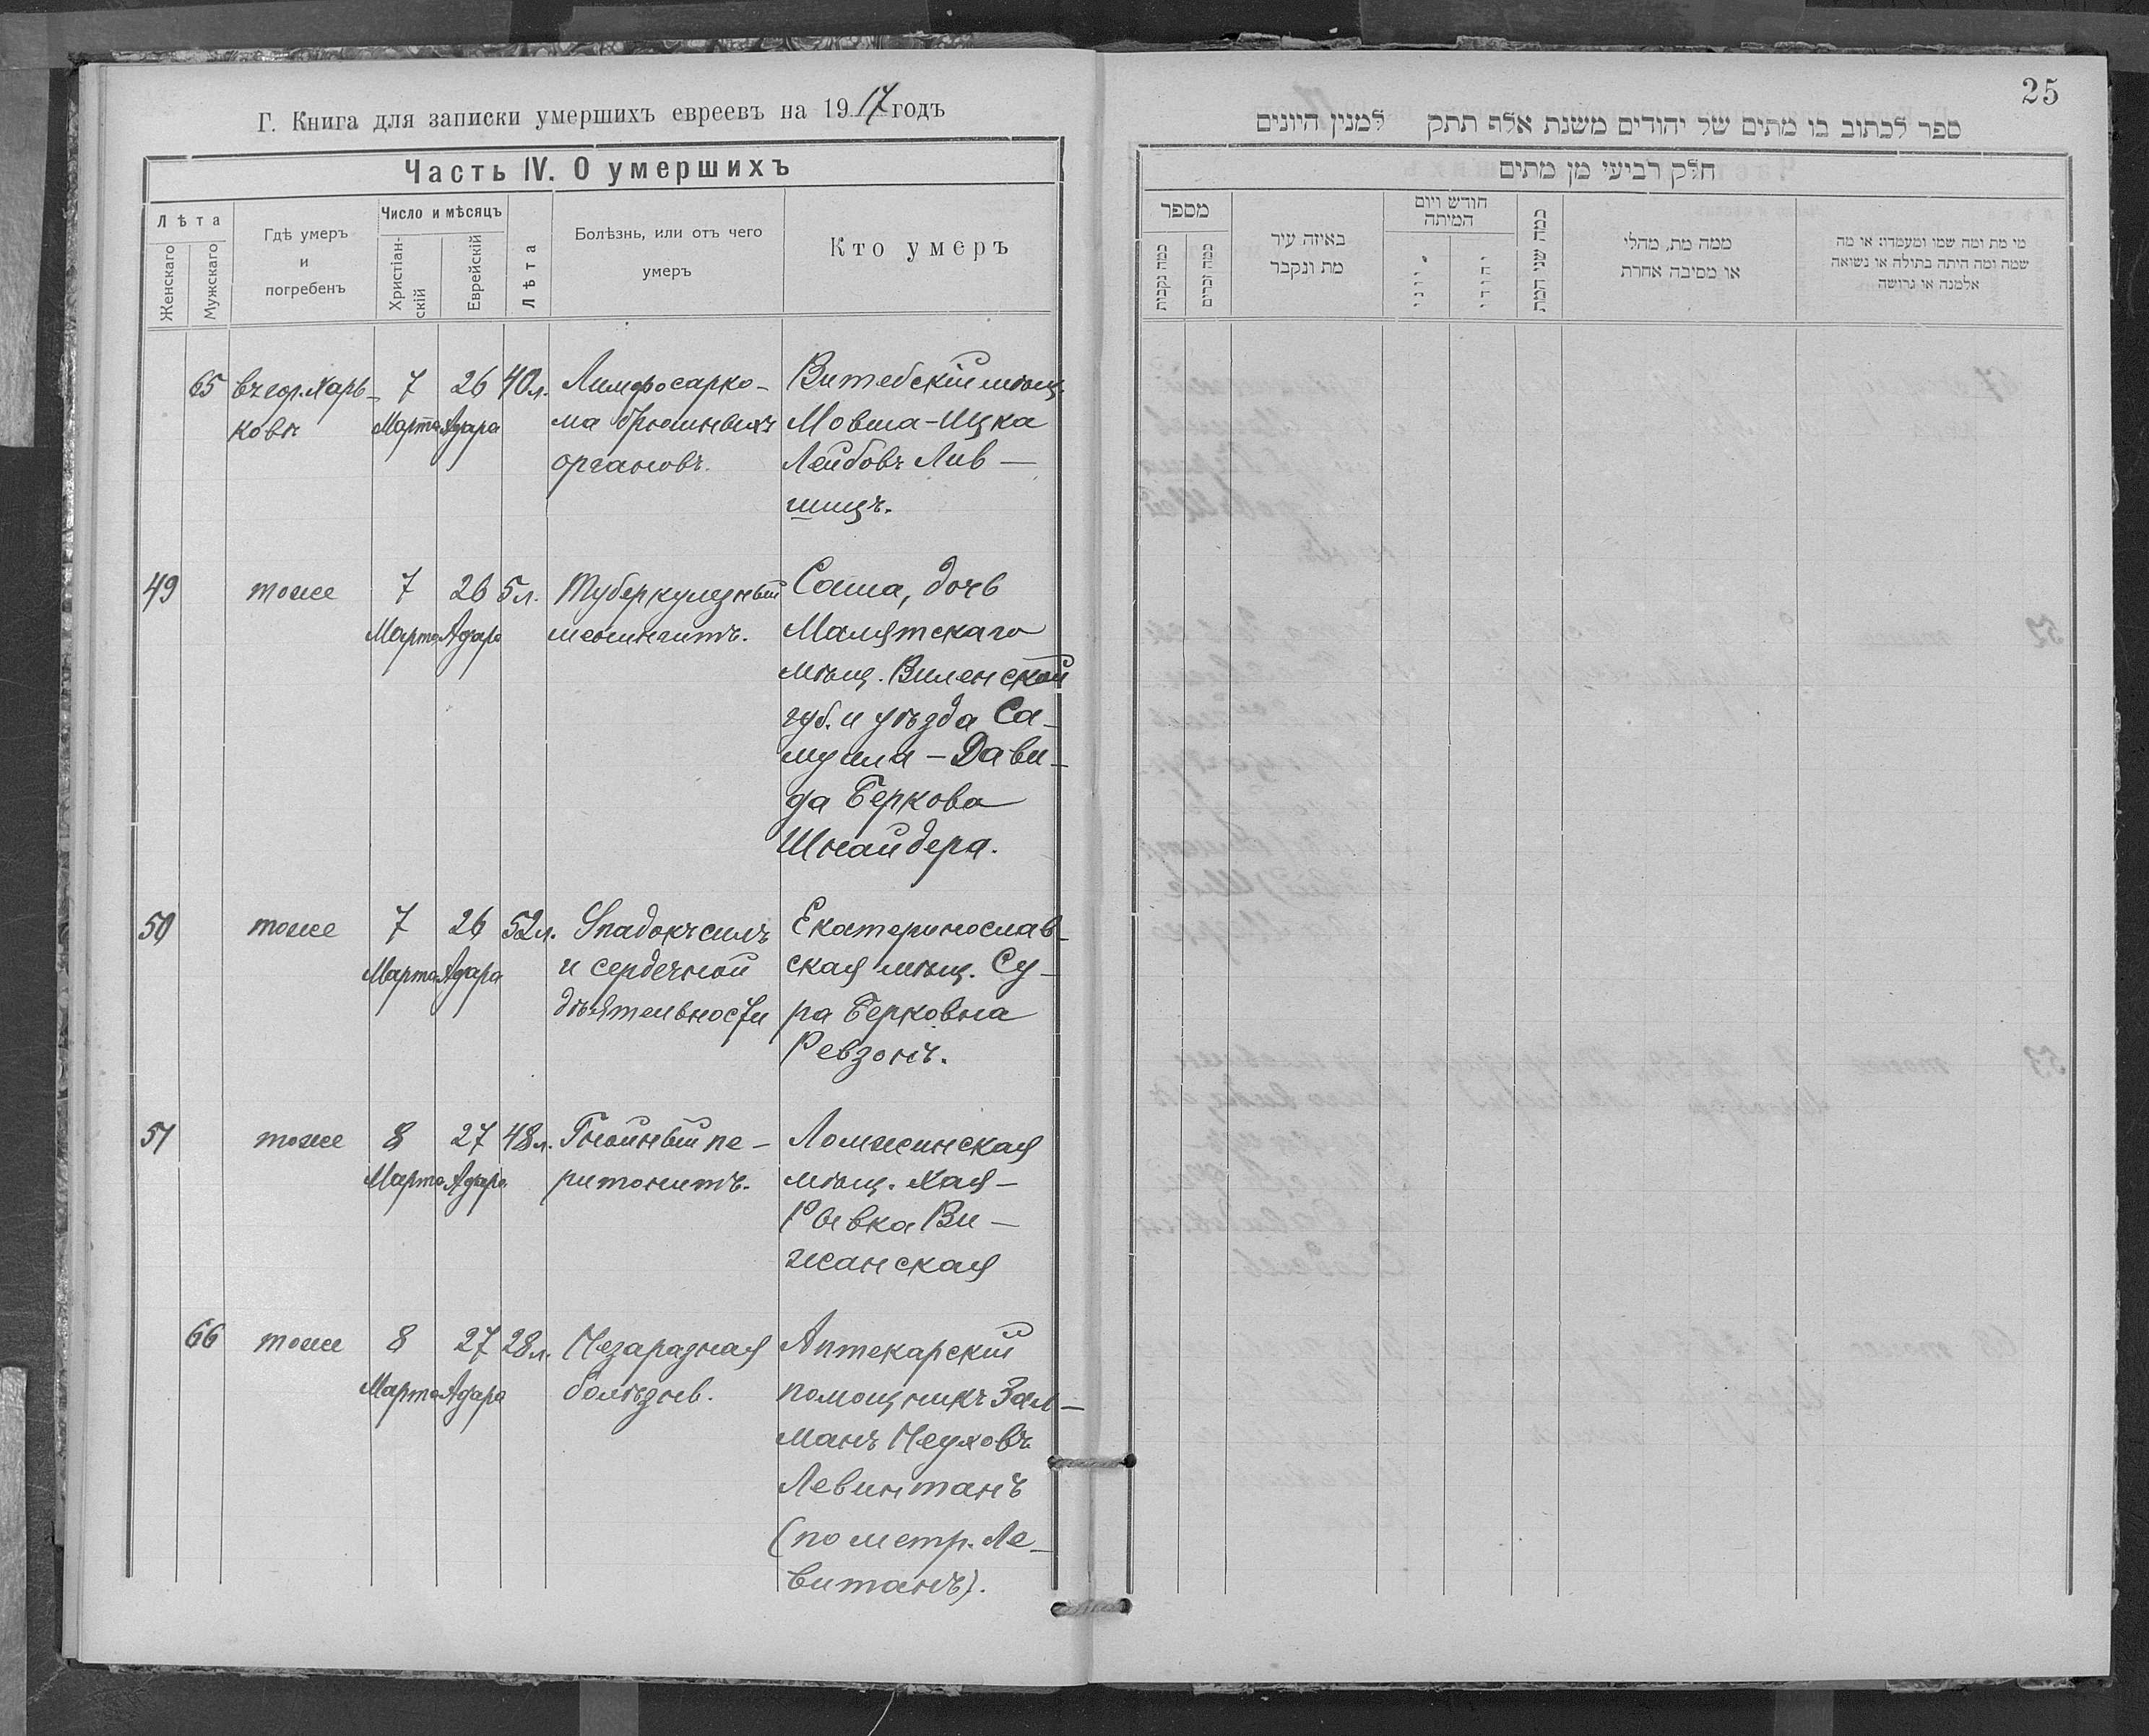 Г. Книга для записки умершихъ евреевъ на 1917 годъ
Часть IV. О умершихъ
Лѣта
Женскаго
Мужскаго
Гдѣ умеръ
и
погребенъ
Число и мѣсяцъ
Христіан-
скій
Еврейскій
Лѣта
Болѣзнь, или отъ чего
умеръ
Кто умеръ
65 въ гор. Харь- 7 26 40 л. Лимфосарко- Витебскій мѣщ.
ковѣ Марта Адара ма брюшныхъ Мовша-Ицка
органовъ. Лейбовъ Лив-
шицъ.
49 тоже 7 26 5 л. Туберкулезный Соша, дочь
Марта Адара менингитъ. Малятскаго
мѣщ. Виленской
губ. и уѣзда Са-
муила-Дави-
да Беркова
Шнайдера.
50 тоже 7 26 52 л. Упадокъ силъ Екатеринослав-
Марта Адара и сердечной ская мѣщ. Су-
дѣятельности ра Берковна
Ревзонъ.
51 тоже 8 27 48 л. Гнойный пе- Ломжинская
Марта Адара ритонитъ. мѣщ. Хая-
Рывка Ви-
жанская
66 тоже 8 27 28 л. Незаразная Аптекарскій
Марта Адара болѣзнь. помощникъ Зал-
манъ Неуховъ
Левинтанъ
(по метр. Ле-
витанъ).
25
ספר לכתוב בו מתים של יהודים משנת אלף תתק למנין היונים
חלק רביעי מן מתים
מספר
כמה נקבות
כמה זכרים
באיזה עיר
מת ונקבר
חודש ויום
המיתה
יווני
יהודי
כמה שני המת
ממה מת, מחלי
או מסיבה אחרת
מי מת ומה שמו ומעמדו: או מה
שמה ומה היתה בתולה או נשואה
אלמנה או גרושה